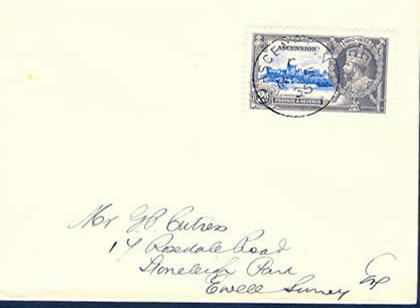 ASCENSION
ASCENSION
35
POSTAGE & REVENUE
Mr G.B. Cutress
14 Rosedale Road
Stoneleigh Park
Ewell Surrey